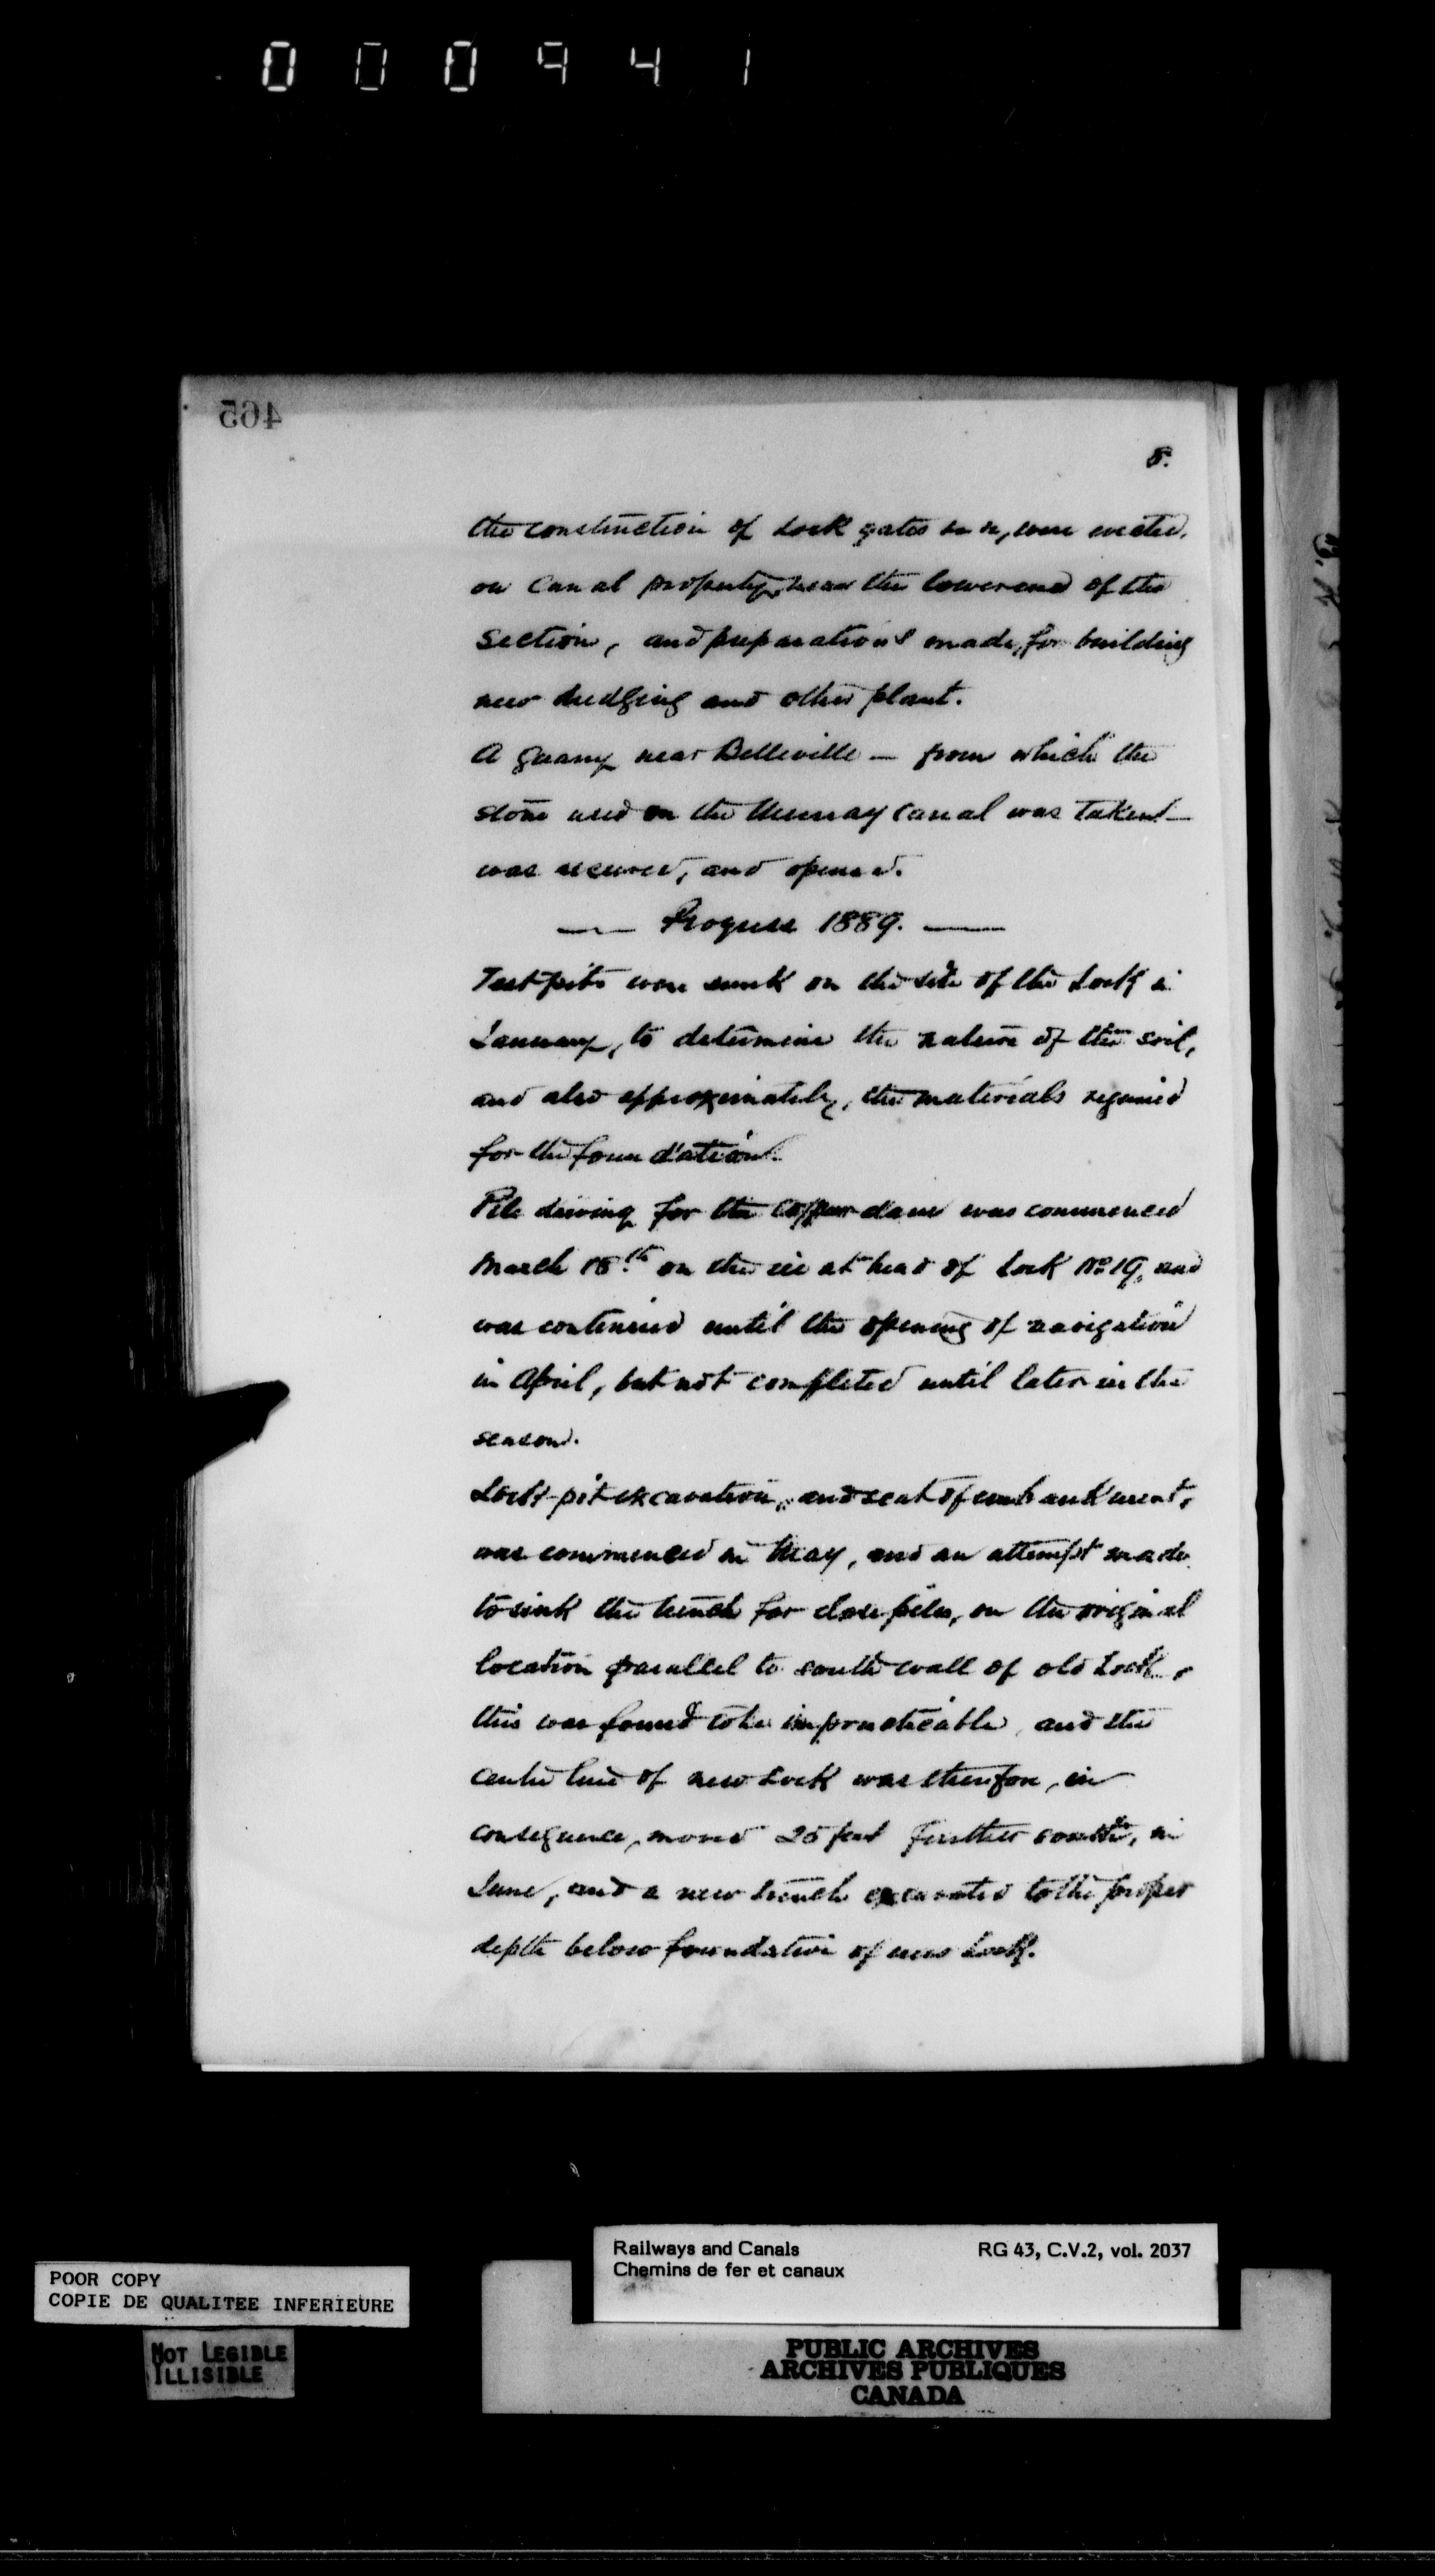 000941
465
8.
the construction of Lock gates &c &c, were erected,
on Canal property, near the lower end of the
Section, and preparations made, for building
new dredging and other plant.
A Quarry near Belleville — from which the
stone used on the Murray Canal was taken —
was secured, and opened.
— Progress 1889. —
Test pits were sunk on the site of the Lock in
January, to determine the nature of the soil,
and also approximately, the materials required
for the foundation.
Pile driving for the Coffer dam was commenced
March 18th on the ice at head of Lock No 19, and
was continued until the opening of navigation
in April, but not completed until later in the
season.
Lock-pit excavation, and seat of embankment,
was commenced in May, and an attempt made
to sink the trench for close piles, on the original
location parallel to south wall of old Lock,
this was found to be impracticable, and the
centre line of new Lock was therefore, in
consequence, moved 25 feet further south, in
June, and a new trench excavated to the proper
depth below foundation of new Lock.
Railways and Canals RG 43, C.V.2, vol. 2037
Chemins de fer et canaux
POOR COPY
COPIE DE QUALITEE INFERIEURE
NOT LEGIBLE
ILLISIBLE
PUBLIC ARCHIVES
ARCHIVES PUBLIQUES
CANADA